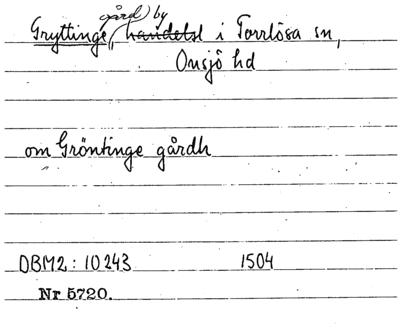 gård) by
Gryttinge, handelsl i Torrlösa sn,
Onsjö hd
om Gröntinge gårdh
DBM2: 10243 1504
Nr 5720.